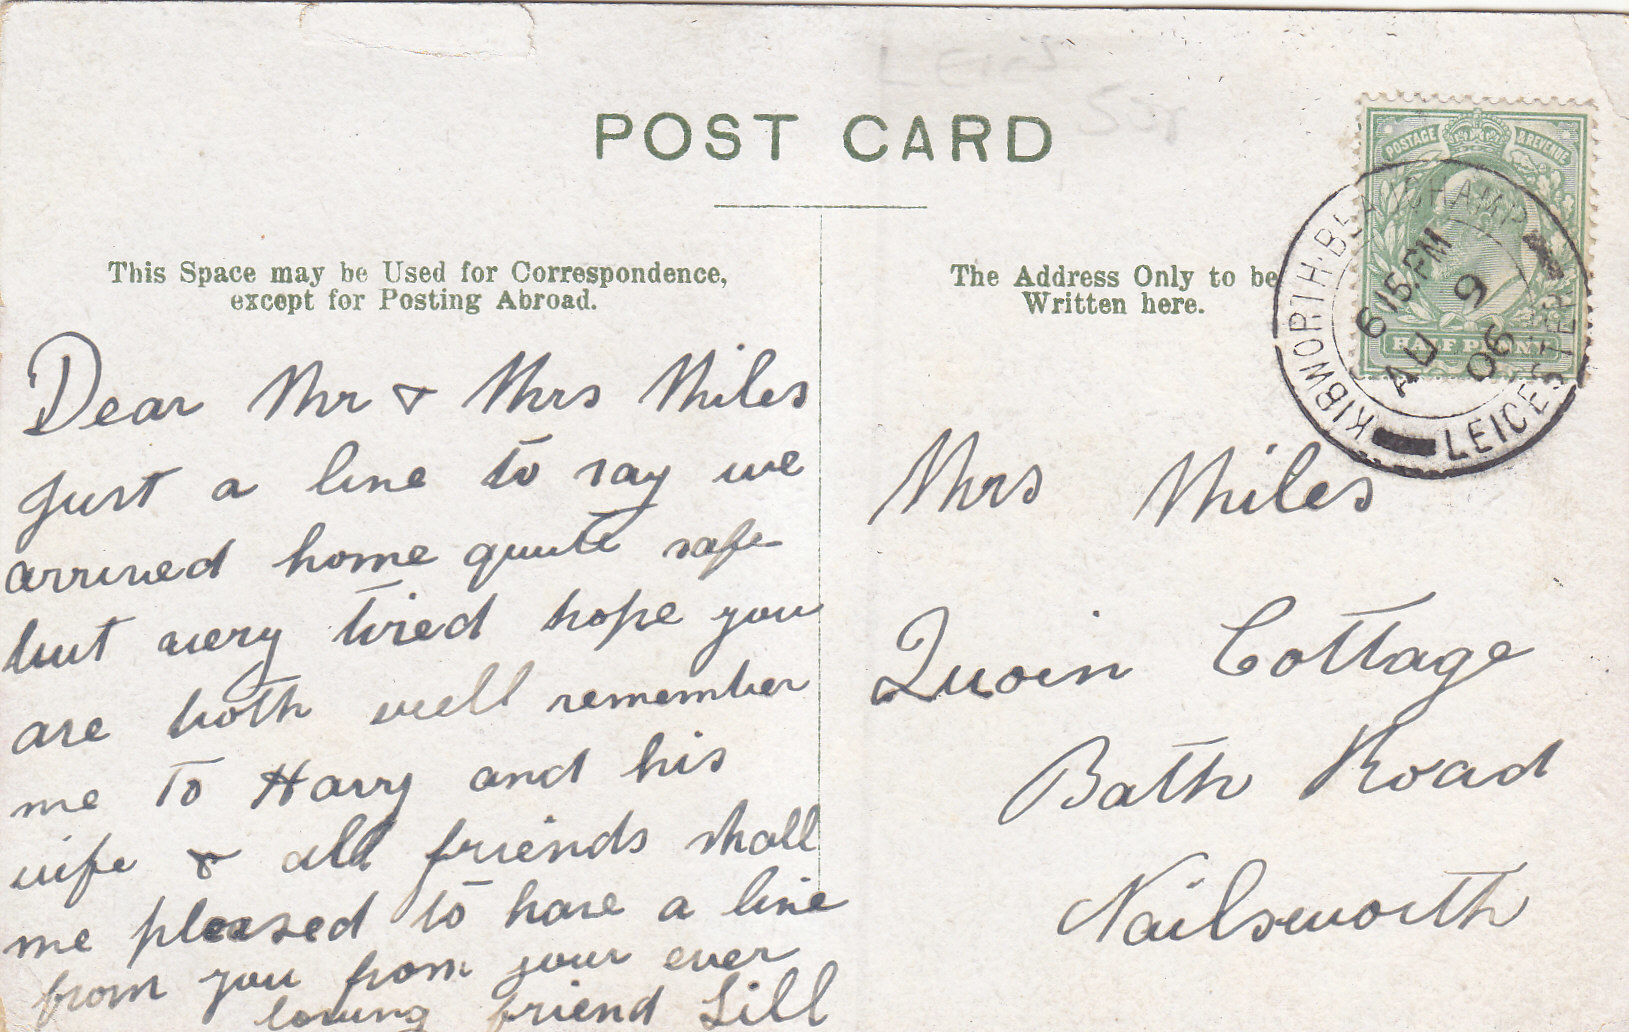 POST CARD
This Space may be Used for Correspondence,
except for Posting Abroad.
The Address Only to be
Written here.
POSTAGE & REVENUE
HALF PENNY
KIBWORTH·BEAUCHAMP
LEICESTER
6 15.PM
AU 9
06
Dear Mr & Mrs Miles
Just a line to say we
arrived home quite safe
but very tired hope you
are both well remember
me to Harry and his
wife & all friends shall
me pleased to have a line
from you from your ever
loving friend Lill
Mrs Miles
Quoin Cottage
Bath Road
Nailsworth